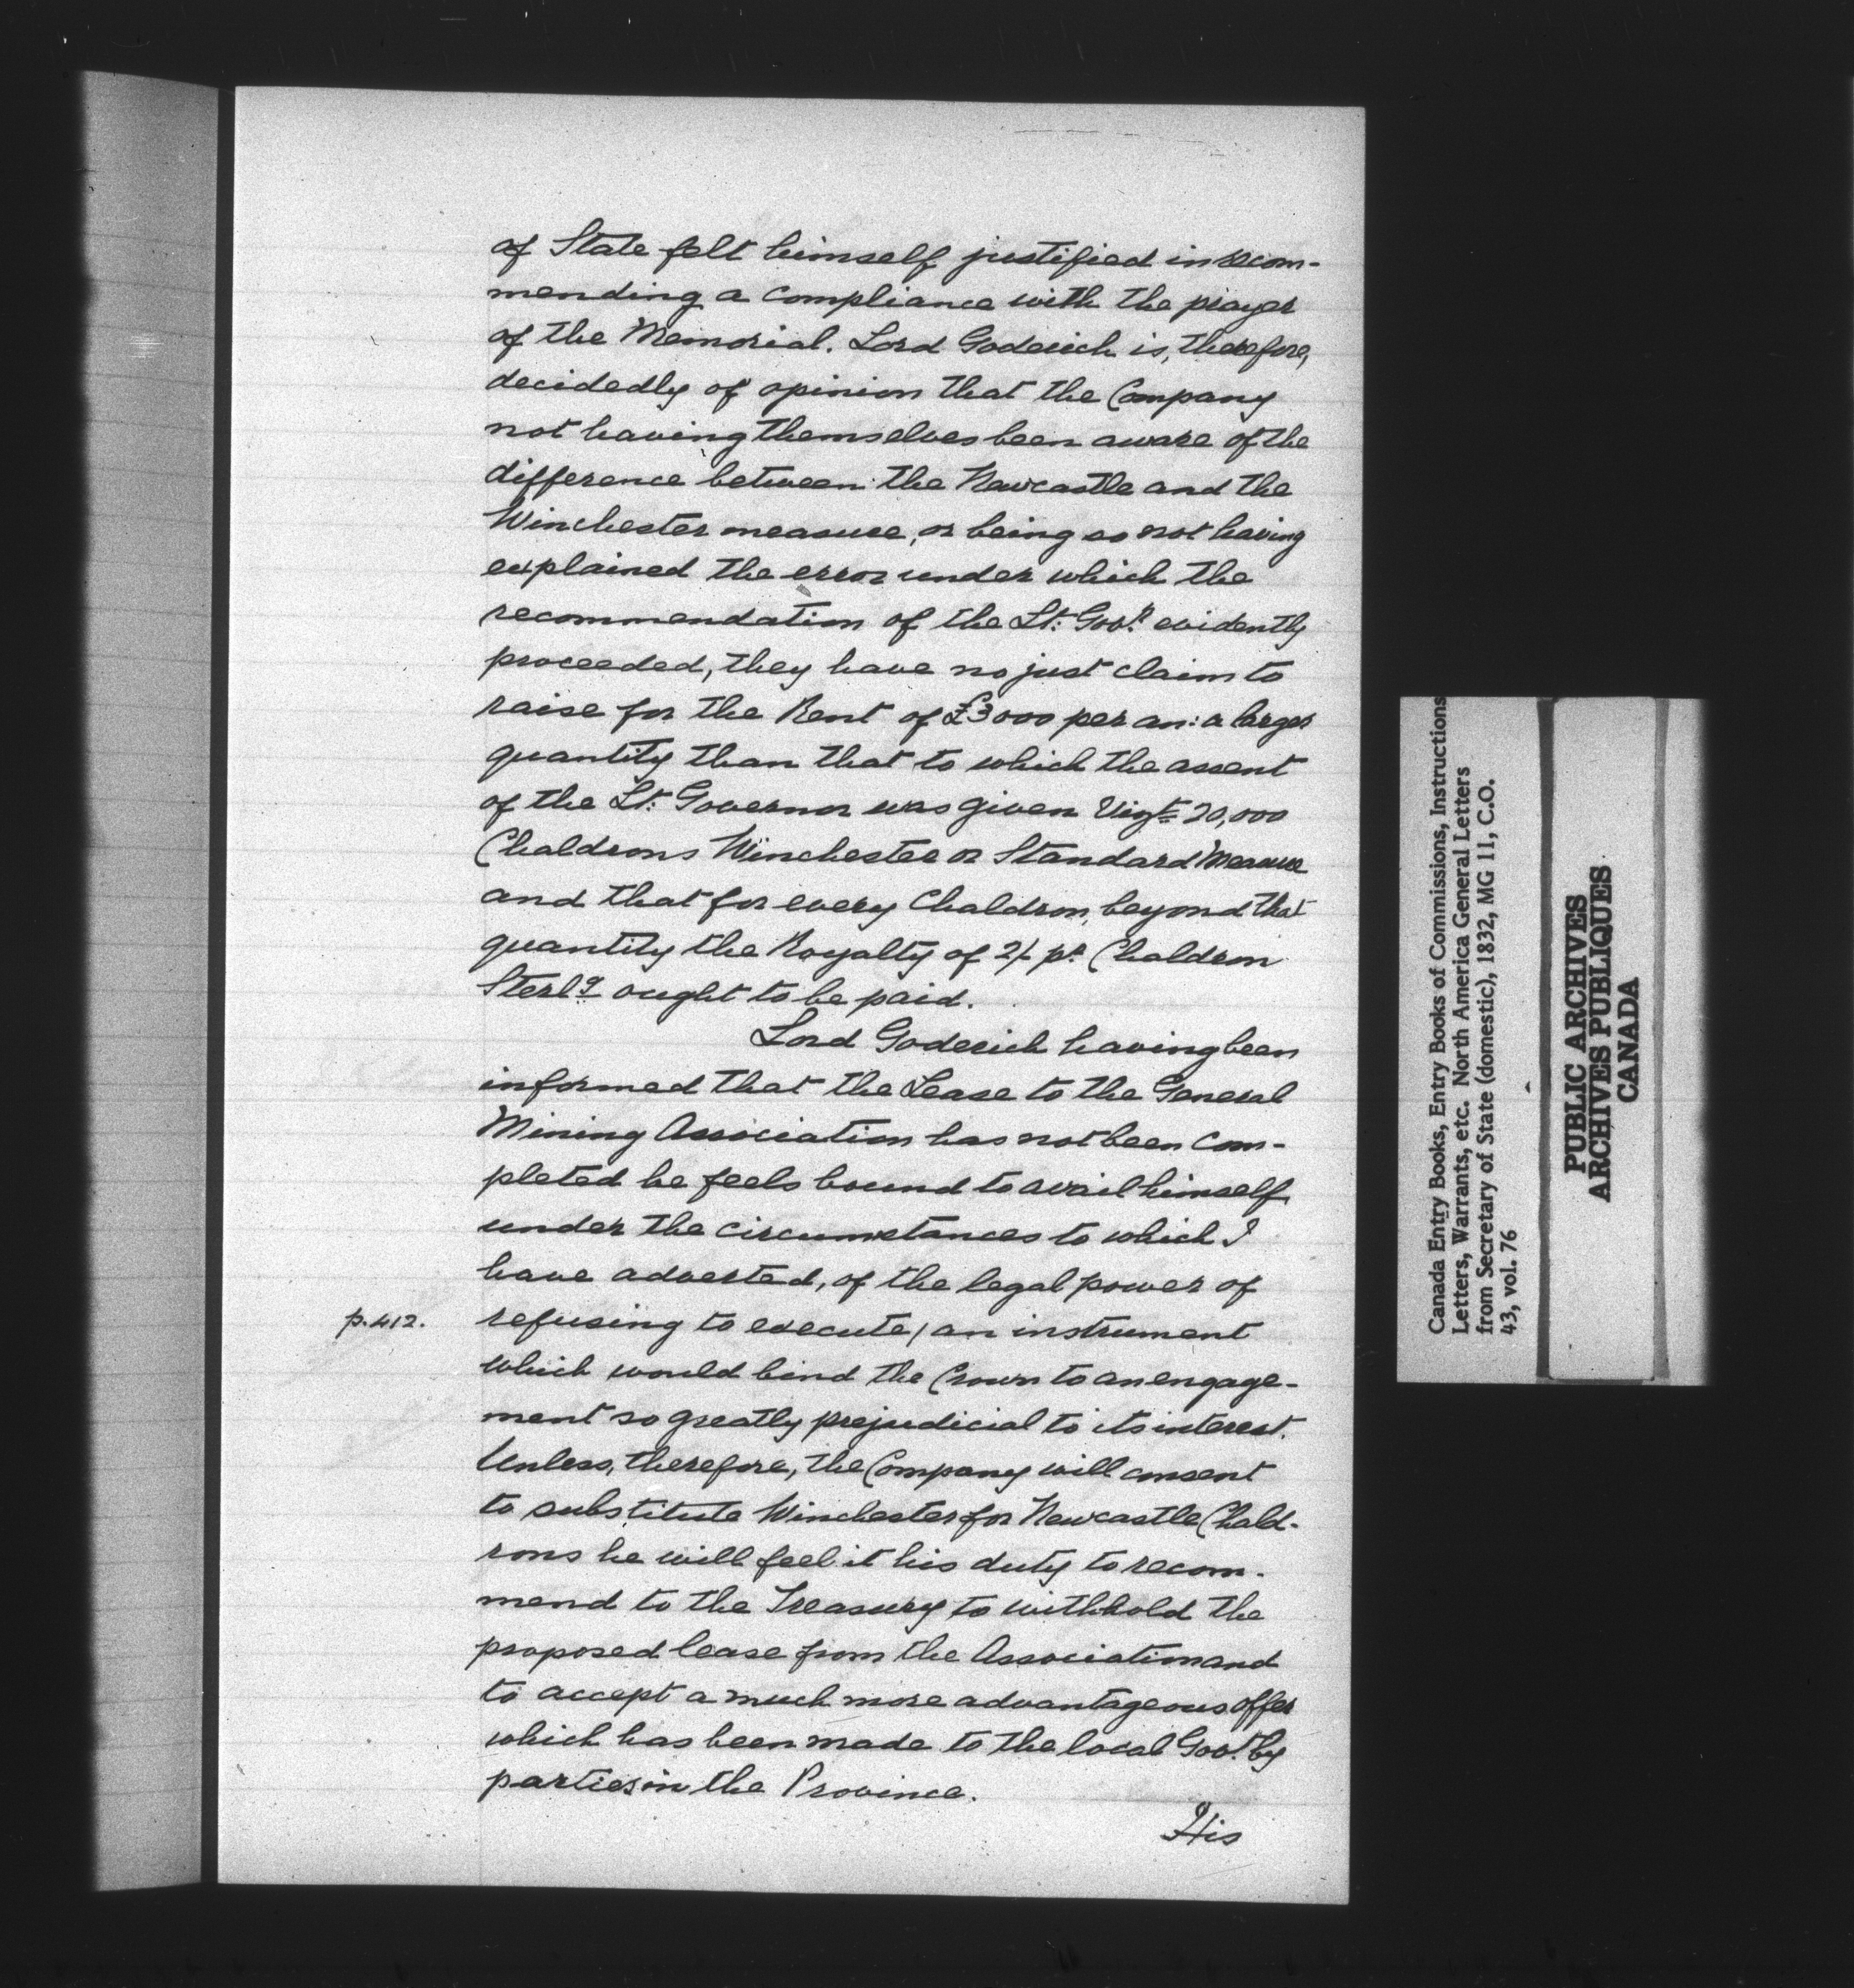 of State felt himself justified in recom-
mending a compliance with the prayer
of the Memorial. Lord Goderich is, therefore,
decidedly of opinion that the Company
not having themselves been aware of the
difference between the Newcastle and the
Winchester measure, or being so not having
explained the error under which the
recommendation of the Lt: Govr. evidently
proceeded, they have no just claim to
raise for the Rent of £3000 per an: a larger
quantity than that to which the assent
of the Lt: Governor was given Vizt 20,000
Chaldrons Winchester or Standard Measure
and that for every Chaldron beyond that
quantity the Royalty of 2/- pr Chaldron
Sterlg ought to be paid.
Lord Goderich having been
informed that the Lease to the General
Mining Association has not been com-
pleted he feels bound to avail himself
under the circumstances to which I
have adverted, of the legal power of
p.412. refusing to execute / an instrument
which would bind the Crown to an engage-
ment so greatly prejudicial to its interest.
Unless, therefore, the Company will consent
to substitute Winchester for Newcastle Chald-
rons he will feel it his duty to recom-
mend to the Treasury to withhold the
proposed lease from the Association and
to accept a much more advantageous offer
which has been made to the local Govt. by
parties in the Province.
His
Canada Entry Books, Entry Books of Commissions, Instructions
Letters, Warrants, etc. North America General Letters
from Secretary of State (domestic), 1832, MG 11, C.O.
43, vol. 76
PUBLIC ARCHIVES
ARCHIVES PUBLIQUES
CANADA